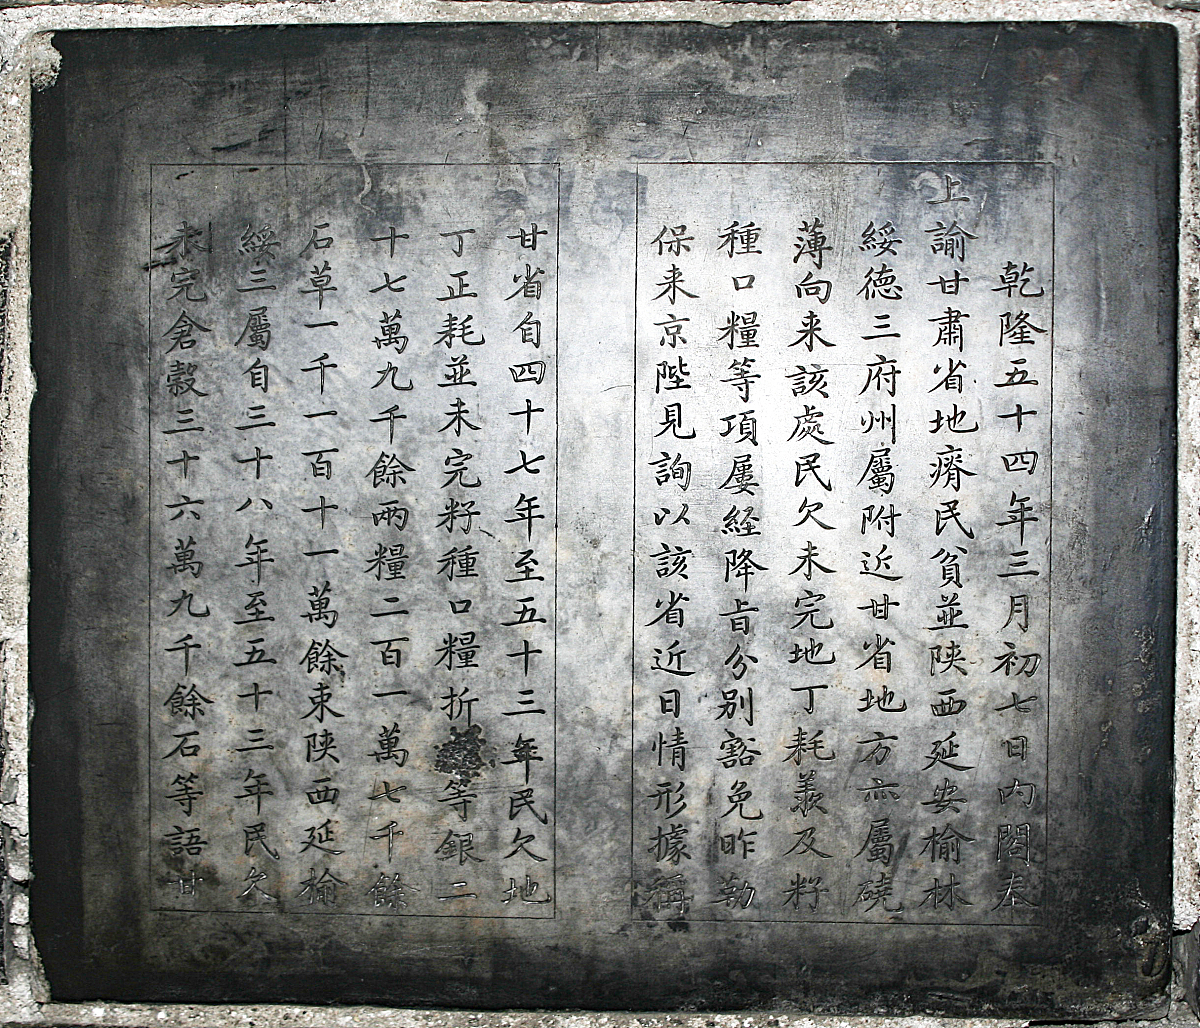 乾隆五十四年三月初七日内閣奉
上諭甘肅省地瘠民貧並陝西延安榆林
綏德三府州屬附近甘省地方亦屬磽
薄向来該處民欠未完地丁耗羨及籽
種口糧等項屢經降旨分別豁免昨勒
保来京陛見詢以該省近日情形據稱
甘省自四十七年至五十三年民欠地
丁正耗並未完籽種口糧折等銀二
十七萬九千餘兩糧二百一萬七千餘
石草一千一百十一萬餘束陝西延榆
綏三屬自三十八年至五十三年民欠
未完倉穀三十六萬九千餘石等語甘